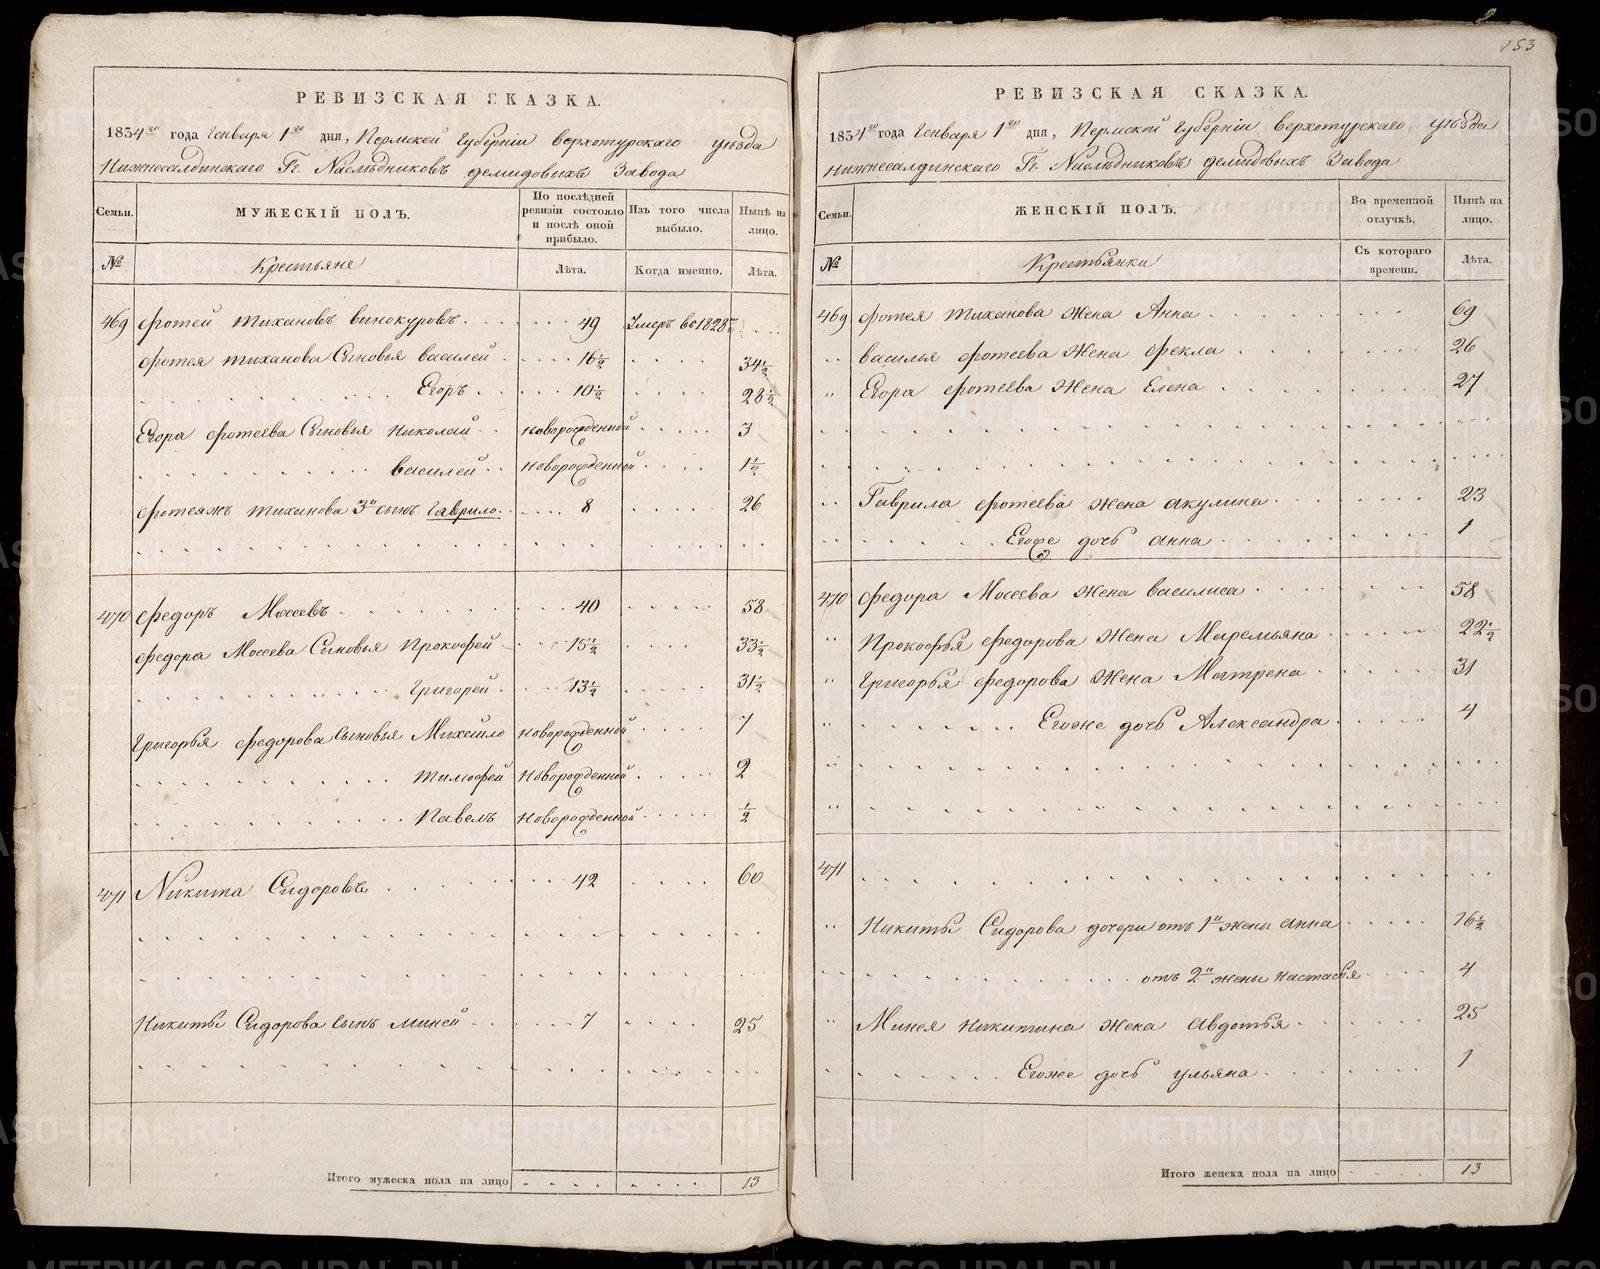 РЕВИЗСКАЯ СКАЗКА.
1834го года Генваря 1го дня, Пермской Губерніи верхотурскаго уѣзда
Нижнесалдинскаго Гг. Наслѣдниковъ демидовыхъ Завода
Семьи. МУЖЕСКІЙ ПОЛЪ. По послѣдней ревизіи состояло и послѣ оной прибыло. Изъ того числа выбыло. Нынѣ на лицо.
№ Крестьяне Лѣта. Когда именно. Лѣта.
469 фотей тихановъ винокуровъ 49 Умеръ въ 1828мъ
фотея тиханова Сыновья василей 16½ 34½
Егоръ 10½ 28½
Егора фотеева Сыновья николай новорожденной 3
василей новорожденной 1½
фотеяжъ тиханова 3й сынъ гаврило 8 26
470 федоръ Мосеевъ 40 58
федора Мосеева Сыновья Прокофей 15½ 33½
григорей 13½ 31½
григорья федорова Сыновья Михайло новорожденной 7
тимофей новорожденной 2
павелъ новорожденной ½
471 Никита Сидоровъ 42 60
никиты Сидорова Сынъ миней 7 25
Итого мужеска пола на лицо 13
153
РЕВИЗСКАЯ СКАЗКА.
1834го года Генваря 1го дня, Пермской губерніи верхотурскаго уѣзда
нижнесалдинскаго Гг. Наслѣдниковъ демидовыхъ Завода
Семьи. ЖЕНСКІЙ ПОЛЪ. Во временной отлучкѣ. Нынѣ на лицо.
№ Крестьянки Съ котораго времени. Лѣта.
469 фотея тиханова жена Анна 69
василья фотеева жена фекла 26
Егора фотеева жена елена 27
Гаврила фотеева жена акулина 23
Егоже дочь анна 1
470 федора Мосеева жена василиса 58
Прокофья федорова жена Маремьяна 22½
григорья федорова жена Матрена 31
Егоже дочь Александра 4
471
Никиты Сидорова дочери отъ 1й жены анна 16½
отъ 2й жены настасья 4
Минея никитина жена авдотья 25
Егоже дочь ульяна 1
Итого женска пола на лицо 13
METRIKI.GASO-URAL.RU